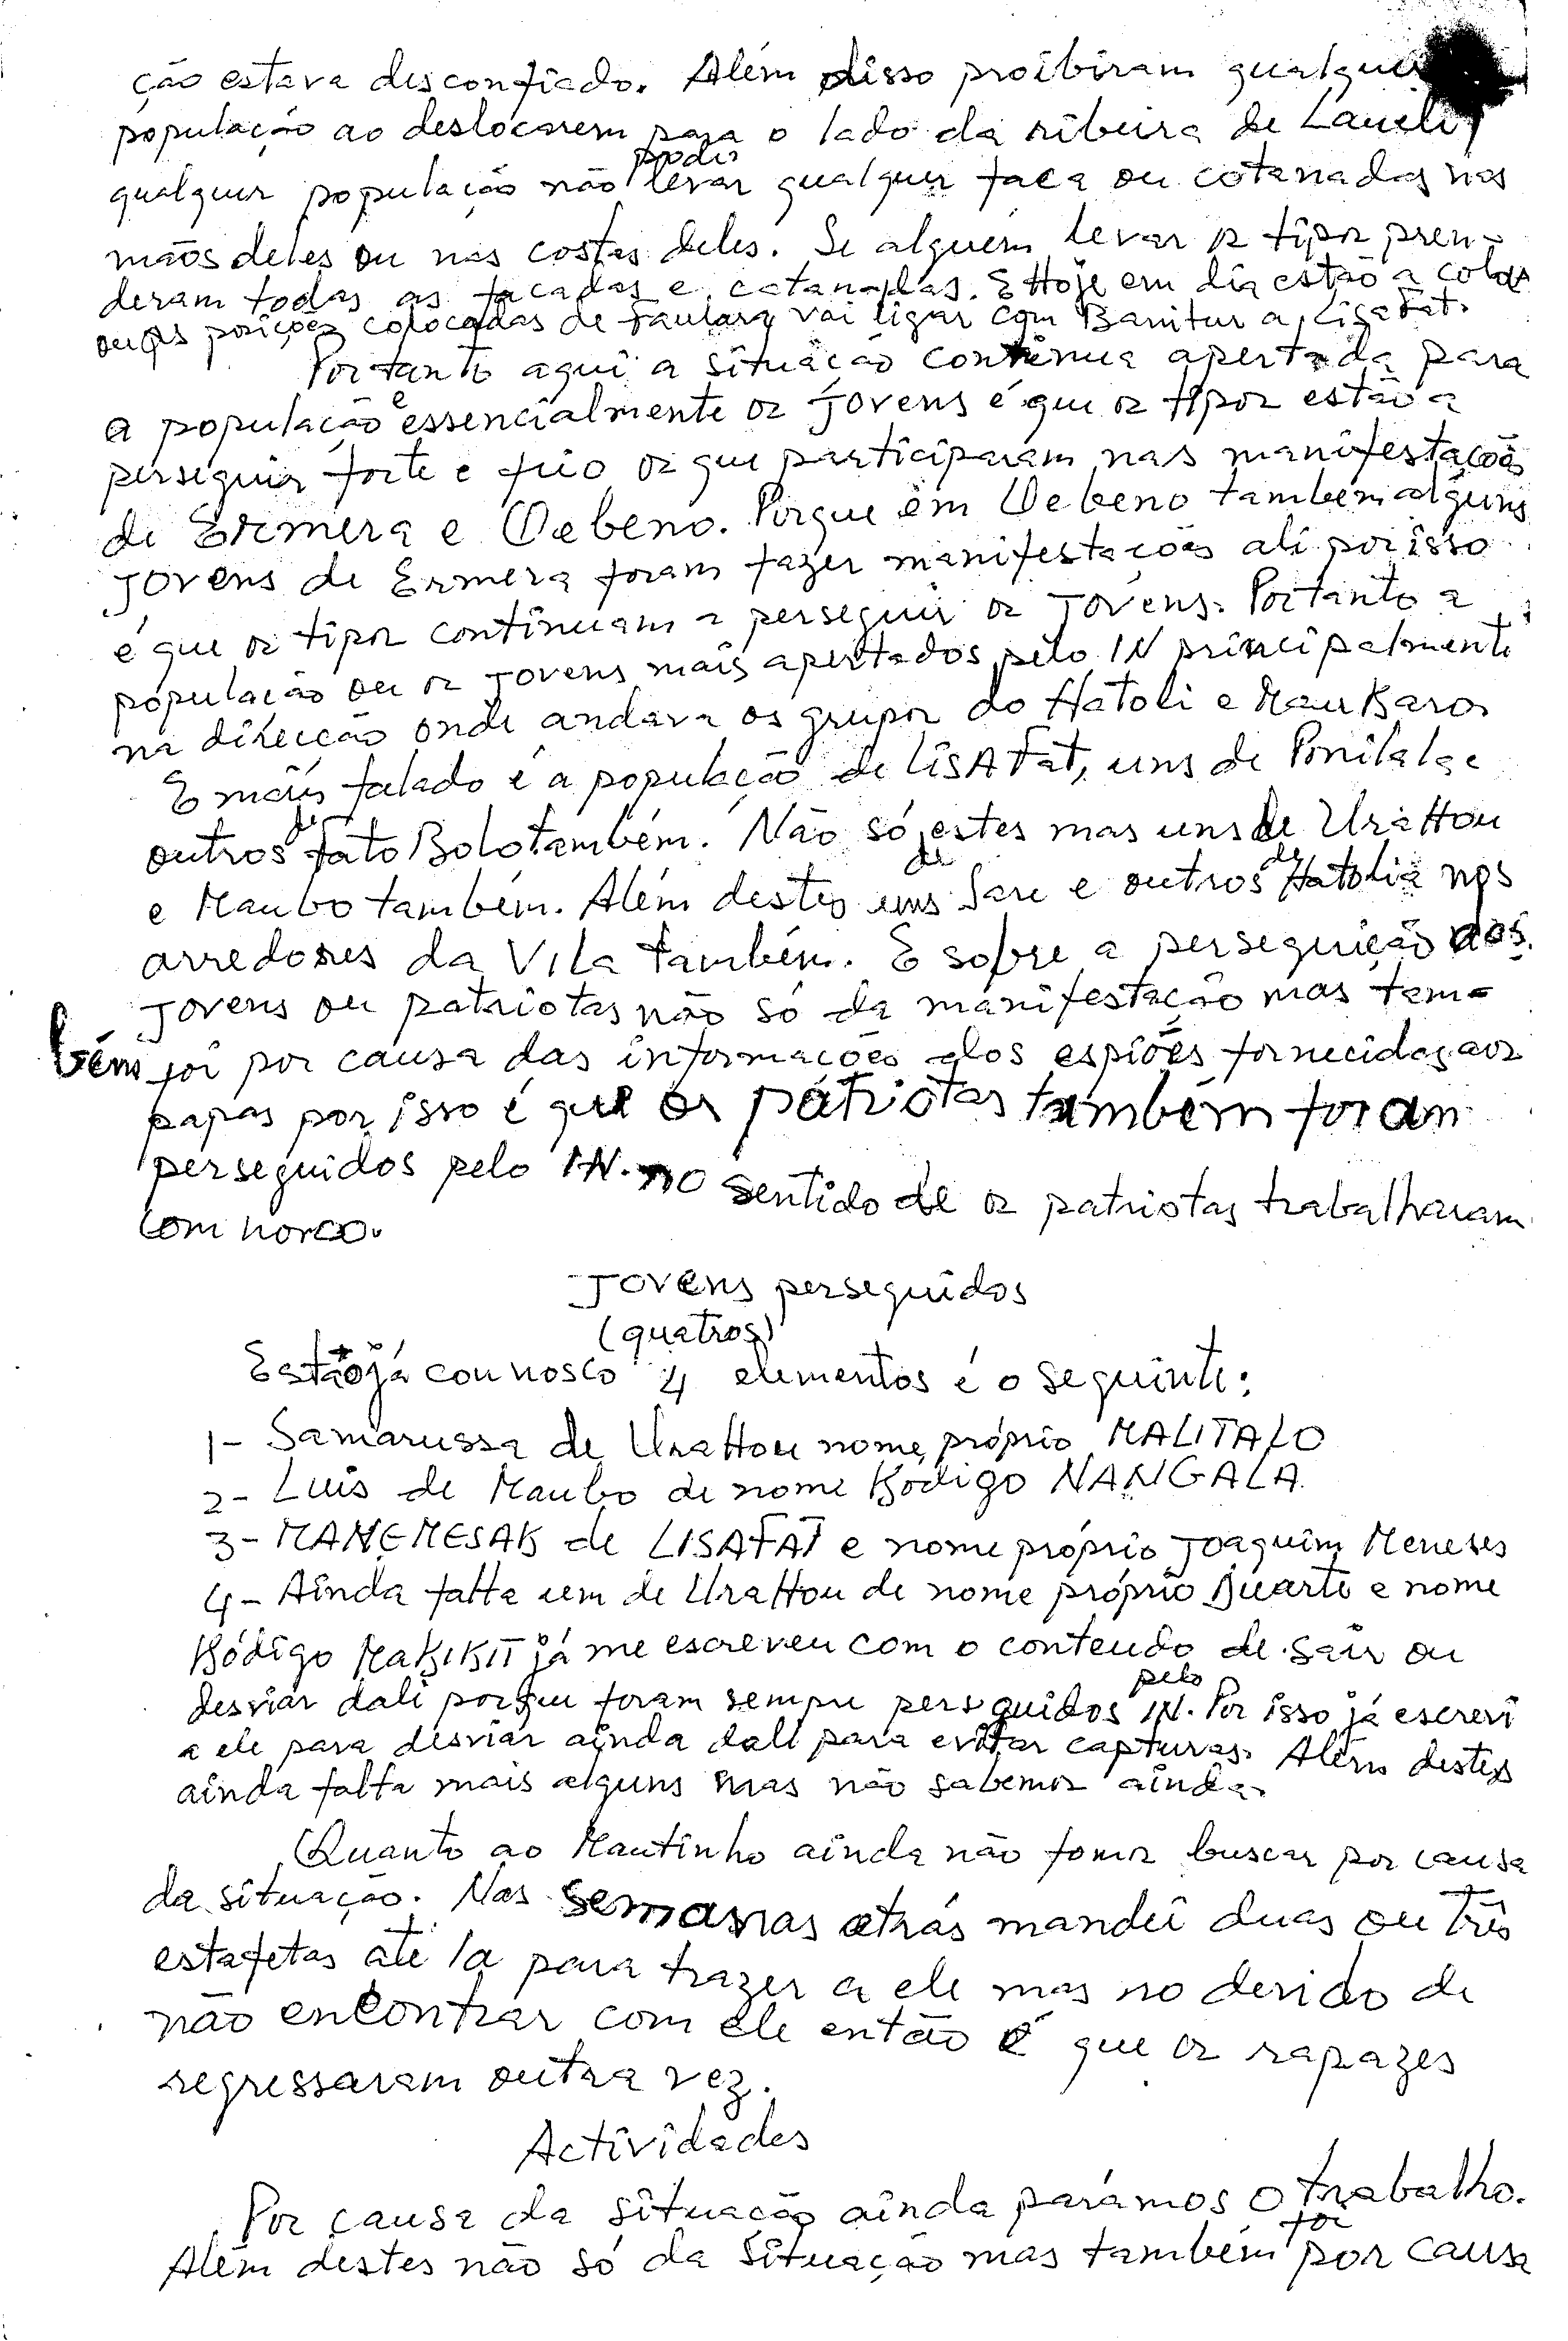 ção estava desconfiado. Além disso proibiram qualquer
população ao deslocarem para o lado da ribeira de Laueli,
qualquer população não podia levar qualquer faca ou catanadas nas
mãos deles ou nas costas deles. Se alguém levar os tipos pren-
deram todas as facadas e catanadas. E Hoje em dia estão a colocar
ou as posições colocadas de Faulara vai ligar com Banitur a Lisafat.
Portanto aqui a situação continua apertada para
a população e essencialmente os Jovens é que os tipos estão a
perseguir forte e feio os que participaram nas manifestações
de Ermera e Oebeno. Porque em Oebeno também alguns
Jovens de Ermera foram fazer manifestações ali por isso
é que os tipos continuam a perseguir os Jovens. Portanto a
população ou os Jovens mais apertados pelo IN principalmente
na direcção onde andava os grupos do Hatoli e MauKaros
E mais falado é a população de LISAFat, uns de Ponilala e
outros de fato Bolo também. Não só estes mas uns de UraHou
e Maubo também. Além destes uns de Sare e outros de Hatolia nos
arredores da Vila também. E sobre a perseguição dos
Jovens ou patriotas não só da manifestação mas tam-
bém foi por causa das informações dos espiões fornecidas aos
papas por isso é que os patriotas também foram
perseguidos pelo IN. no sentido de os patriotas trabalharam
com nosco.
Jovens perseguidos
(quatros)
Estão já counosco 4 elementos é o seguinte:
1- Samarussa de UraHou nome próprio MALITALO
2- Luis de Maubo de nome Kódigo NANGALA.
3- MANEMESAK de LISAFAT e nome próprio Joaquim Meneses
4- Ainda falta um de UraHou de nome próprio Duarte e nome
Kódigo MaKIKIT já me escreveu com o conteudo de sair ou
desviar dali porque foram sempre perseguidos pelo IN. Por isso já escrevi
a ele para desviar ainda dali para evitar capturas. Além destes
ainda falta mais alguns mas não sabemos ainda.
Quanto ao Mautinho ainda não fomos buscar por causa
da situação. Nas semanas atrás mandei duas ou três
estafetas até la para trazer a ele mas no devido de
não encontrar com ele então é que os rapazes
regressaram outra vez.
Actividades
Por causa da situação ainda parámos o trabalho.
Além destes não só da situação mas também foi por causa